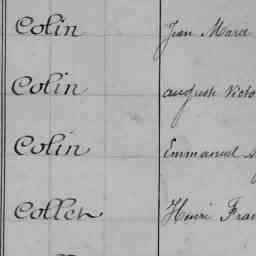 Colin Jean Marie
Colin auguste Victo
Colin Emmanuel
Collen Henri Fran